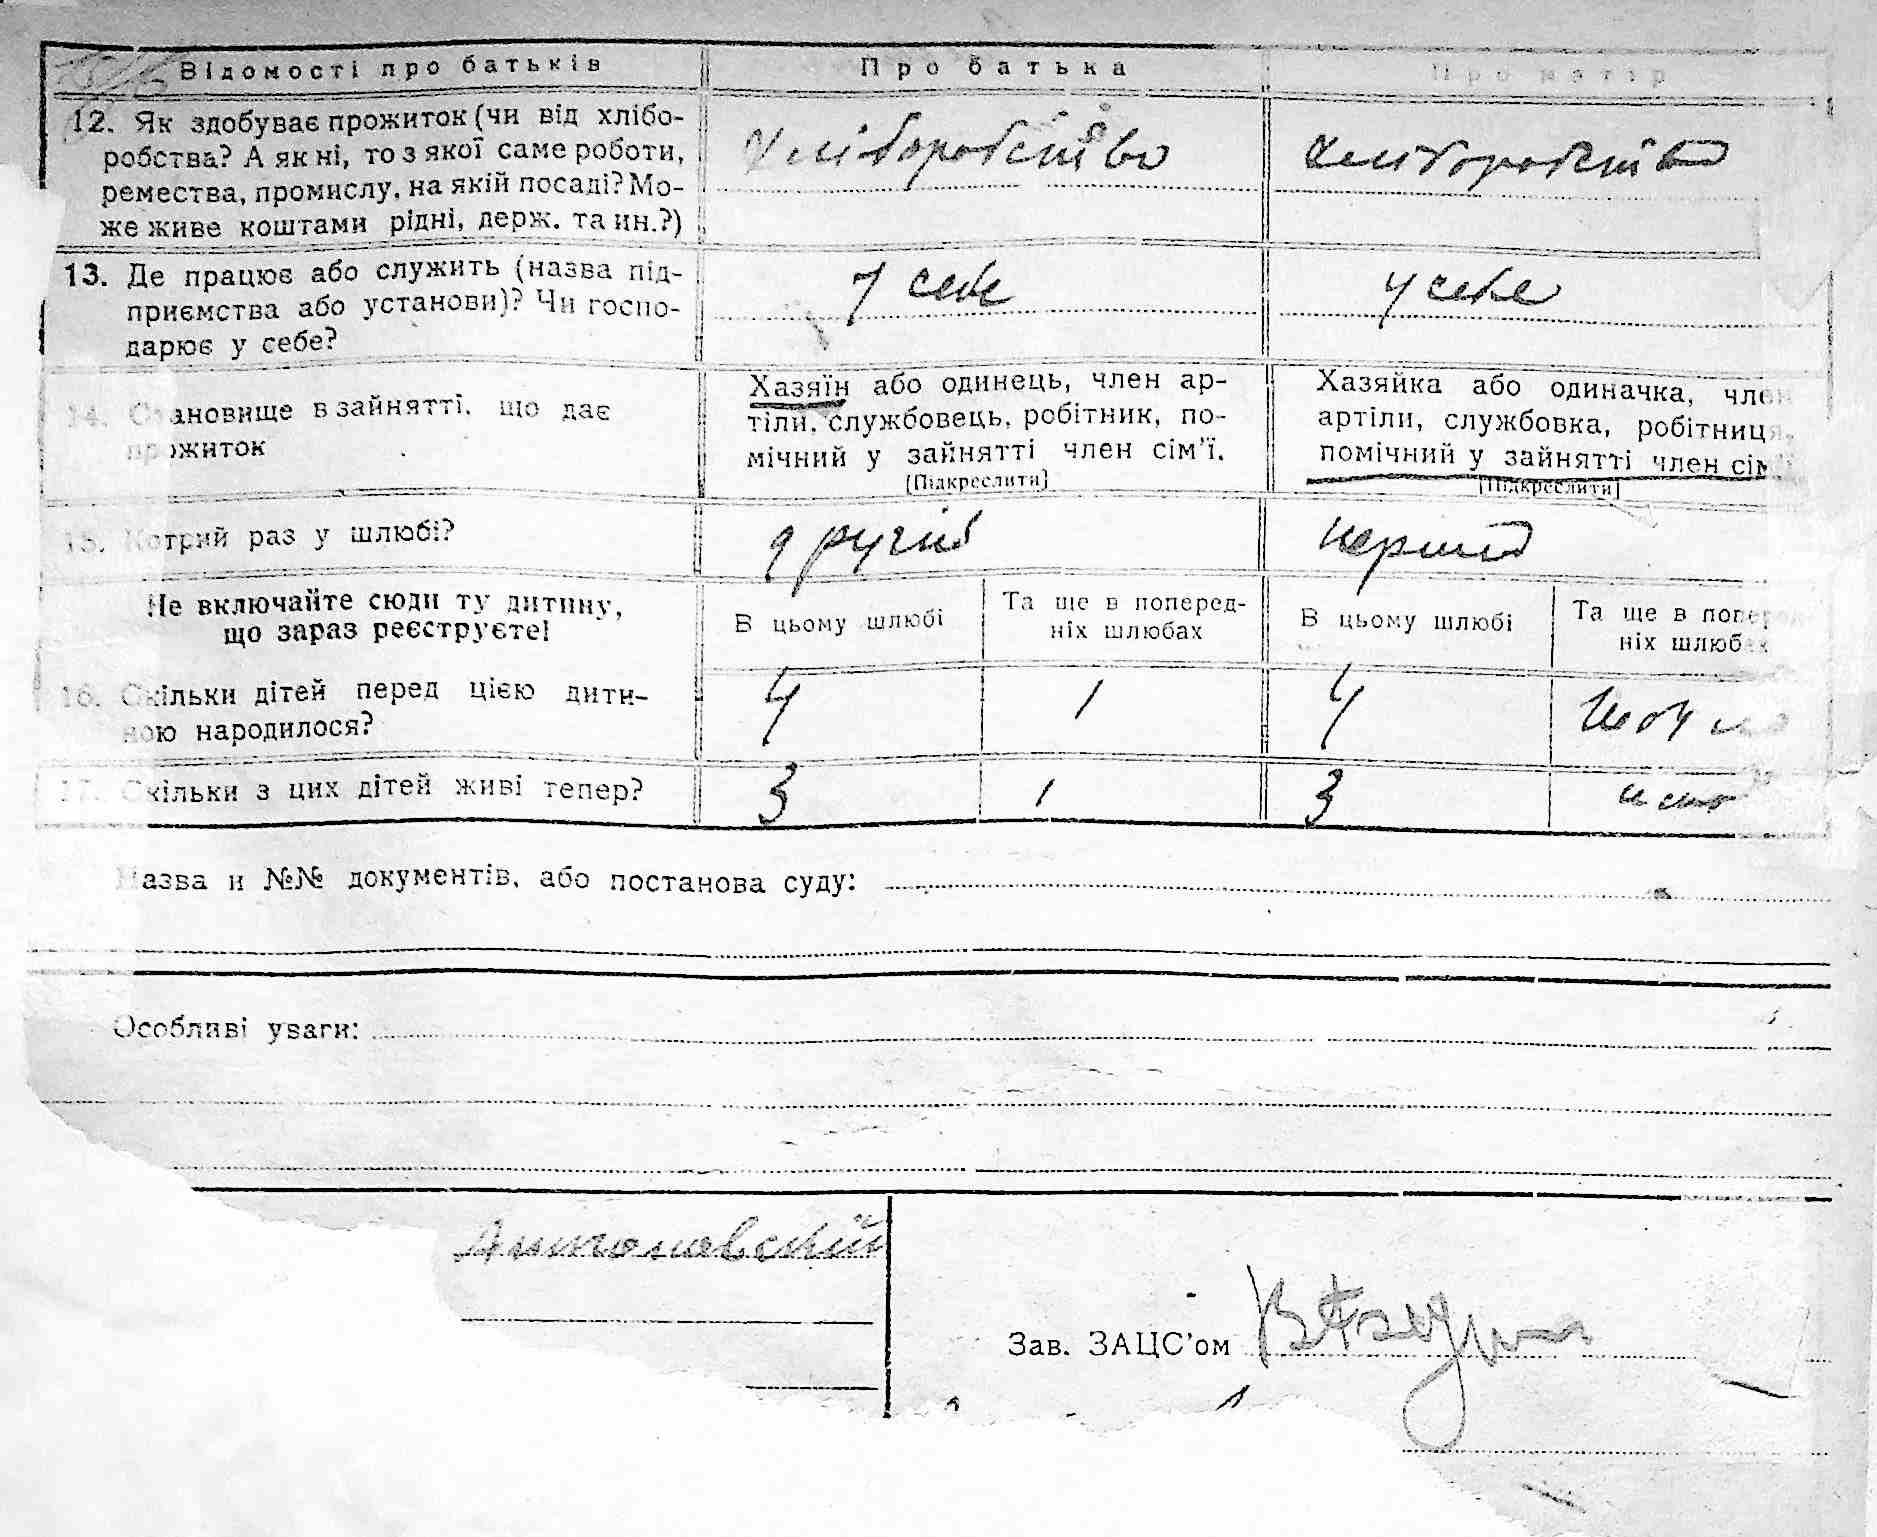 Відомості про батьків Про батька Про матір
12. Як здобуває прожиток (чи від хлібо-
робства? А як ні, то з якої саме роботи,
ремества, промислу, на якій посаді? Мо-
же живе коштами рідні, держ. та ин.?)
хліборобство хліборобство
13. Де працює або служить (назва під-
приємства або установи)? Чи госпо-
дарює у себе?
у себе у себе
14. Становище в зайнятті, що дає
прожиток
Хазяїн або одинець, член ар-
тіли, службовець, робітник, по-
мічний у зайнятті член сім'ї.
(Підкреслити)
Хазяйка або одиначка, член
артіли, службовка, робітниця,
помічний у зайнятті член сім'ї
(Підкреслити)
15. Котрий раз у шлюбі? другий перший
Не включайте сюди ту дитину,
що зараз реєструєте!
В цьому шлюбі
Та ще в поперед-
ніх шлюбах
В цьому шлюбі
Та ще в поперед-
ніх шлюбах
16. Скільки дітей перед цією дити-
ною народилося?
4 1 4
17. Скільки з цих дітей живі тепер? 3 1 3
Назва и №№ документів, або постанова суду:
Особливі уваги:
Антоновский
Зав. ЗАЦС'ом